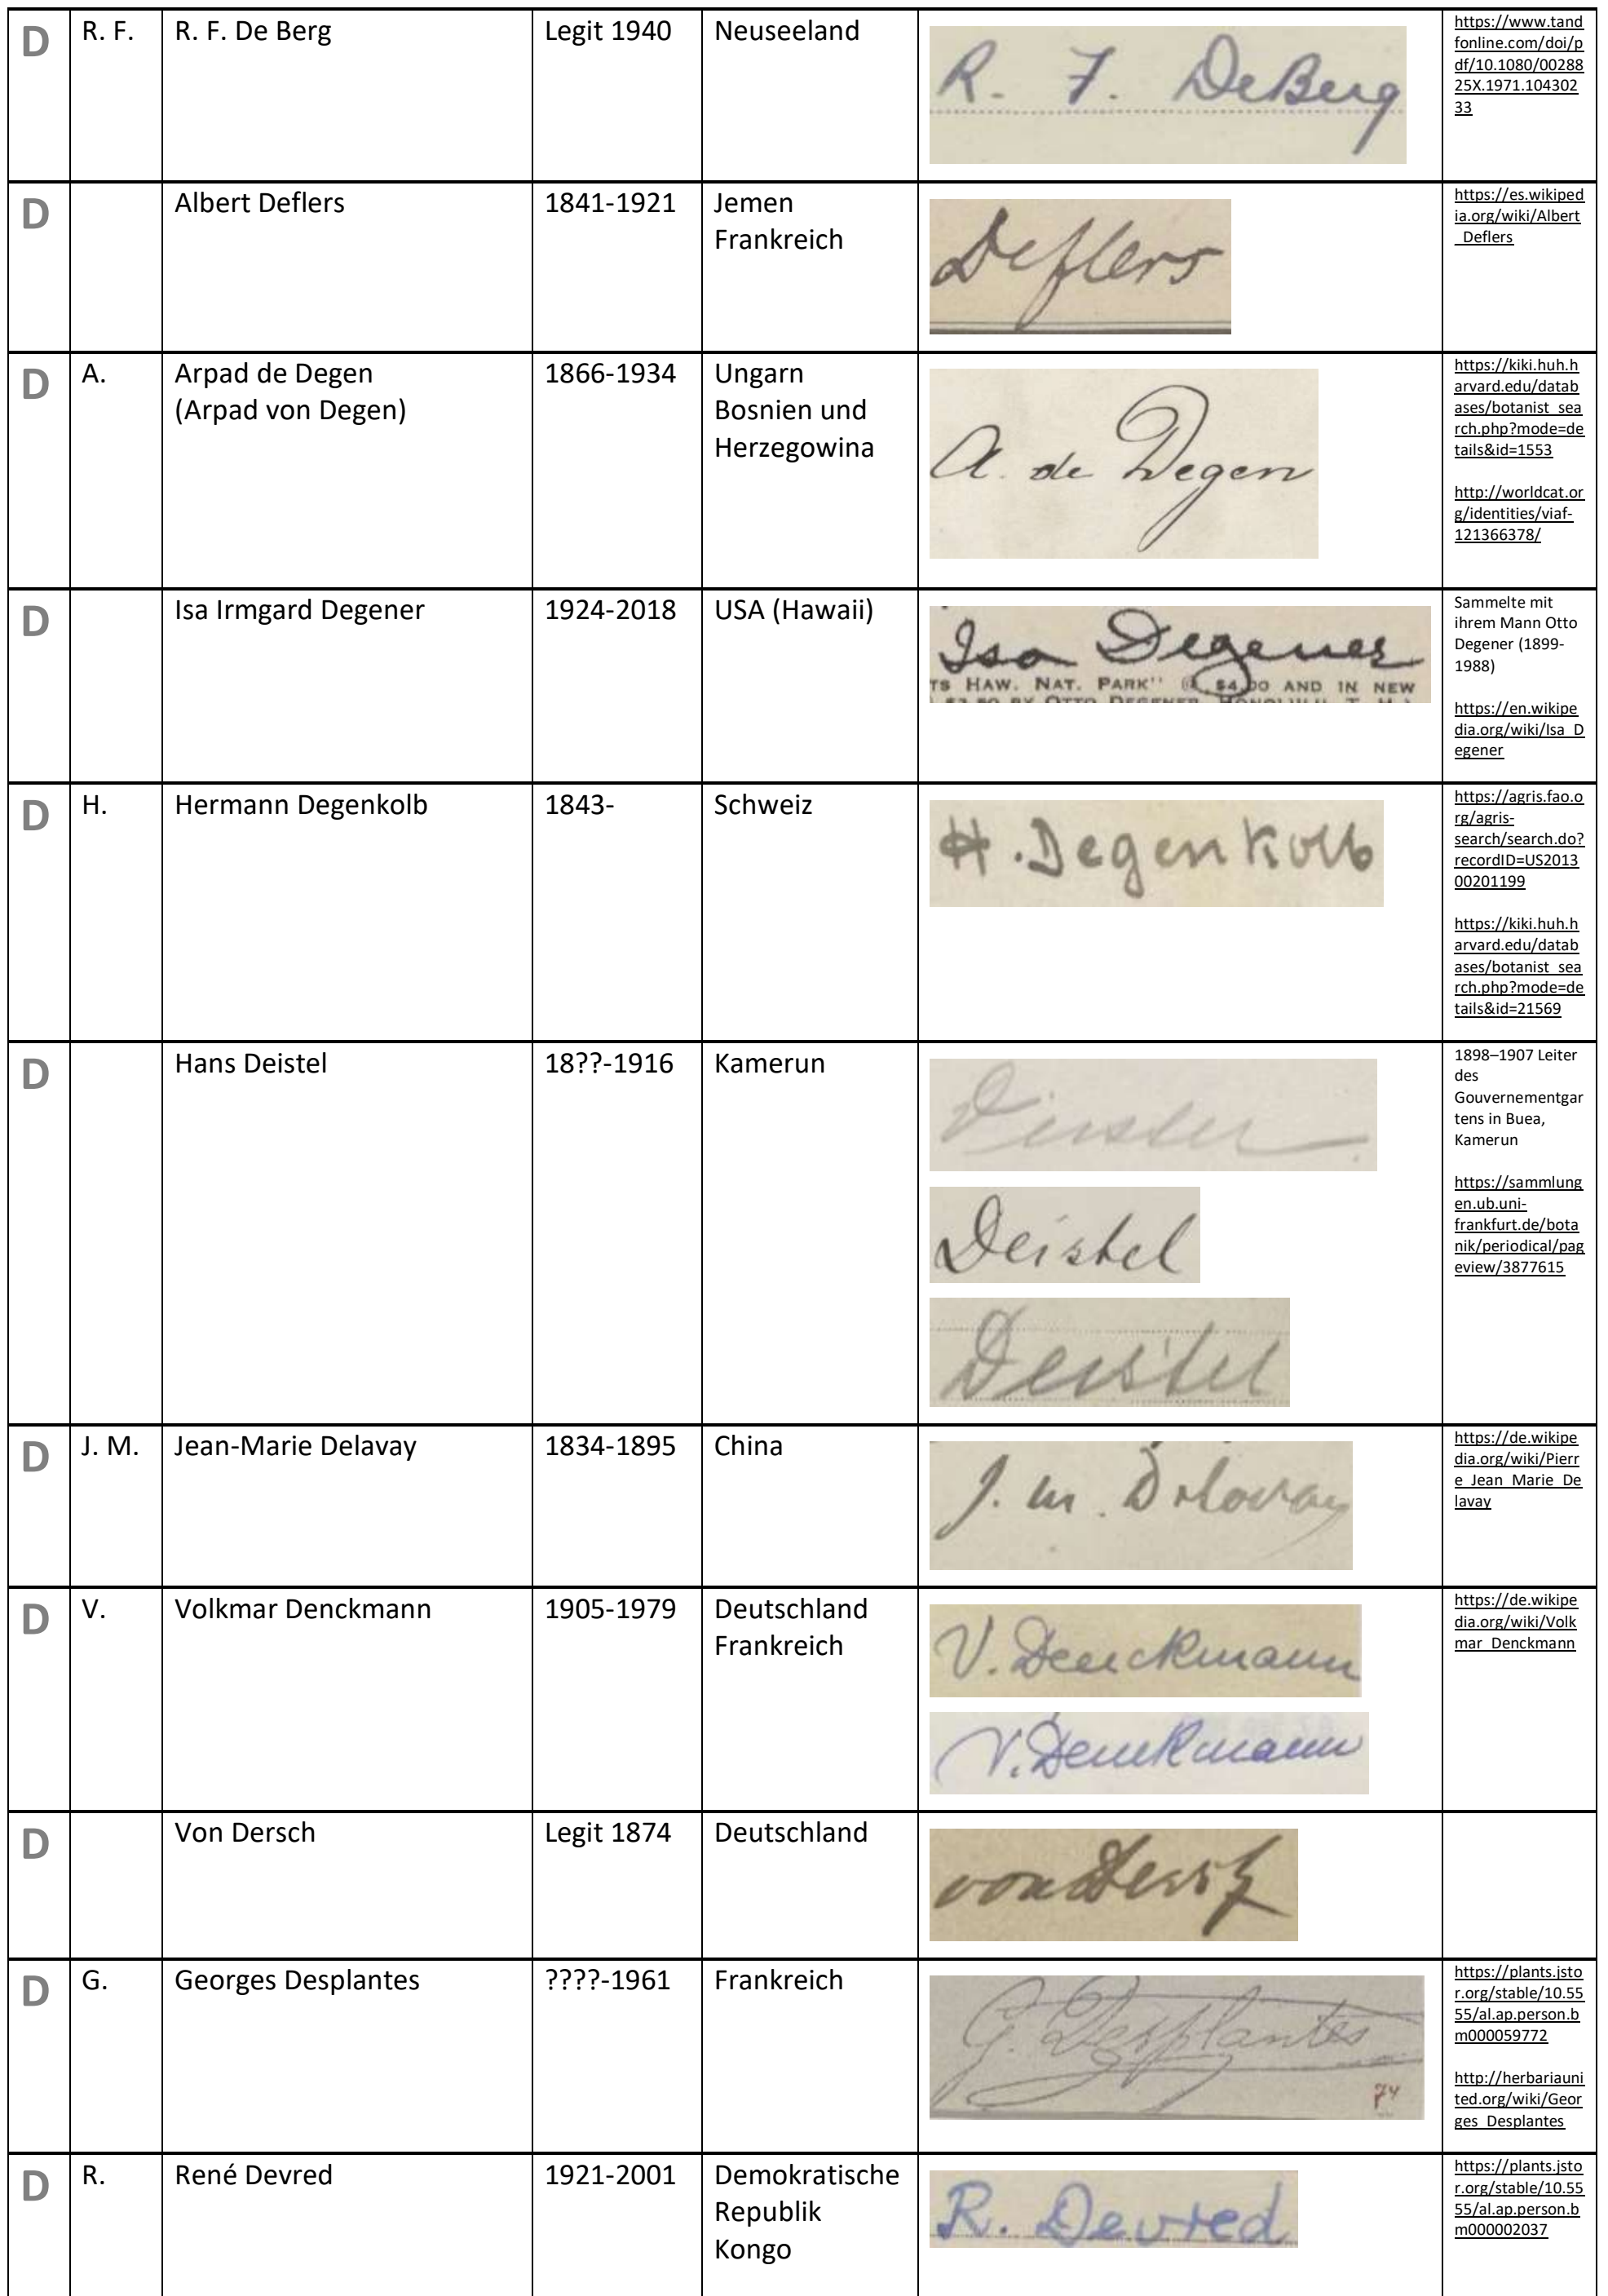 D
R. F.
R. F. De Berg
Legit 1940
Neuseeland
R. F. DeBerg
https://www.tand
fonline.com/doi/p
df/10.1080/00288
25X.1971.104302
33
D
Albert Deflers
1841-1921
Jemen
Frankreich
Deflers
https://es.wikiped
ia.org/wiki/Albert
_Deflers
D
A.
Arpad de Degen
(Arpad von Degen)
1866-1934
Ungarn
Bosnien und
Herzegowina
A. de Degen
https://kiki.huh.h
arvard.edu/datab
ases/botanist_sea
rch.php?mode=de
tails&id=1553
http://worldcat.or
g/identities/viaf-
121366378/
D
Isa Irmgard Degener
1924-2018
USA (Hawaii)
Isa Degener
TS HAW. NAT. PARK" @ $4.00 AND IN NEW
$3.50 BY OTTO DEGENER, HONOLULU, T. H.)
Sammelte mit
ihrem Mann Otto
Degener (1899-
1988)
https://en.wikipe
dia.org/wiki/Isa_D
egener
D
H.
Hermann Degenkolb
1843-
Schweiz
H. Degenkolb
https://agris.fao.o
rg/agris-
search/search.do?
recordID=US2013
00201199
https://kiki.huh.h
arvard.edu/datab
ases/botanist_sea
rch.php?mode=de
tails&id=21569
D
Hans Deistel
18??-1916
Kamerun
Deistel
Deistel
Deistel
1898–1907 Leiter
des
Gouvernementgar
tens in Buea,
Kamerun
https://sammlung
en.ub.uni-
frankfurt.de/bota
nik/periodical/pag
eview/3877615
D
J. M.
Jean-Marie Delavay
1834-1895
China
J. m. Delavay
https://de.wikipe
dia.org/wiki/Pierr
e_Jean_Marie_De
lavay
D
V.
Volkmar Denckmann
1905-1979
Deutschland
Frankreich
V. Denckmann
V. Denckmann
https://de.wikipe
dia.org/wiki/Volk
mar_Denckmann
D
Von Dersch
Legit 1874
Deutschland
von Dersch
D
G.
Georges Desplantes
????-1961
Frankreich
G. Desplantes
74
https://plants.jsto
r.org/stable/10.55
55/al.ap.person.b
m000059772
http://herbariauni
ted.org/wiki/Geor
ges_Desplantes
D
R.
René Devred
1921-2001
Demokratische
Republik
Kongo
R. Devred
https://plants.jsto
r.org/stable/10.55
55/al.ap.person.b
m000002037